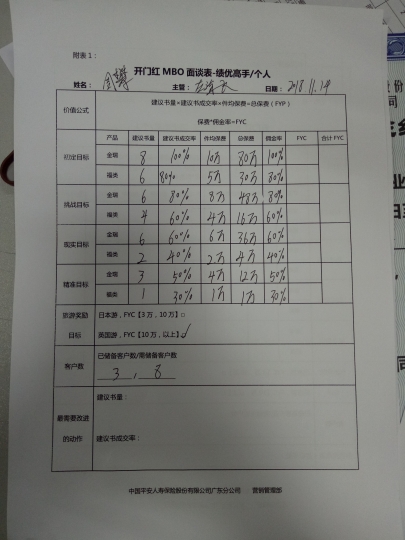 附表 1：
开门红 MBO 面谈表-绩优高手/个人
姓名： 主管： 日期：2018.11.14
价值公式 建议书量×建议书成交率×件均保费=总保费（FYP）
保费*佣金率=FYC
产品 建议书量 建议书成交率 件均保费 总保费 佣金率 FYC 合计 FYC
初定目标 金瑞 8 100% 10万 80万 100%
福类 6 80% 5万 30万 80%
挑战目标 金瑞 6 80% 8万 48万 80%
福类 4 60% 4万 16万 60%
现实目标 金瑞 6 60% 6万 36万 60%
福类 2 40% 2万 4万 40%
精准目标 金瑞 3 50% 4万 12万 50%
福类 1 30% 1万 1万 30%
旅游奖励目标 日本游，FYC【3 万，10 万】□
英国游，FYC【10 万，以上】☑
客户数 已储备客户数/需储备客户数
3 , 8
最需要改进的动作 建议书量：
建议书成交率：
中国平安人寿保险股份有限公司广东分公司 营销管理部